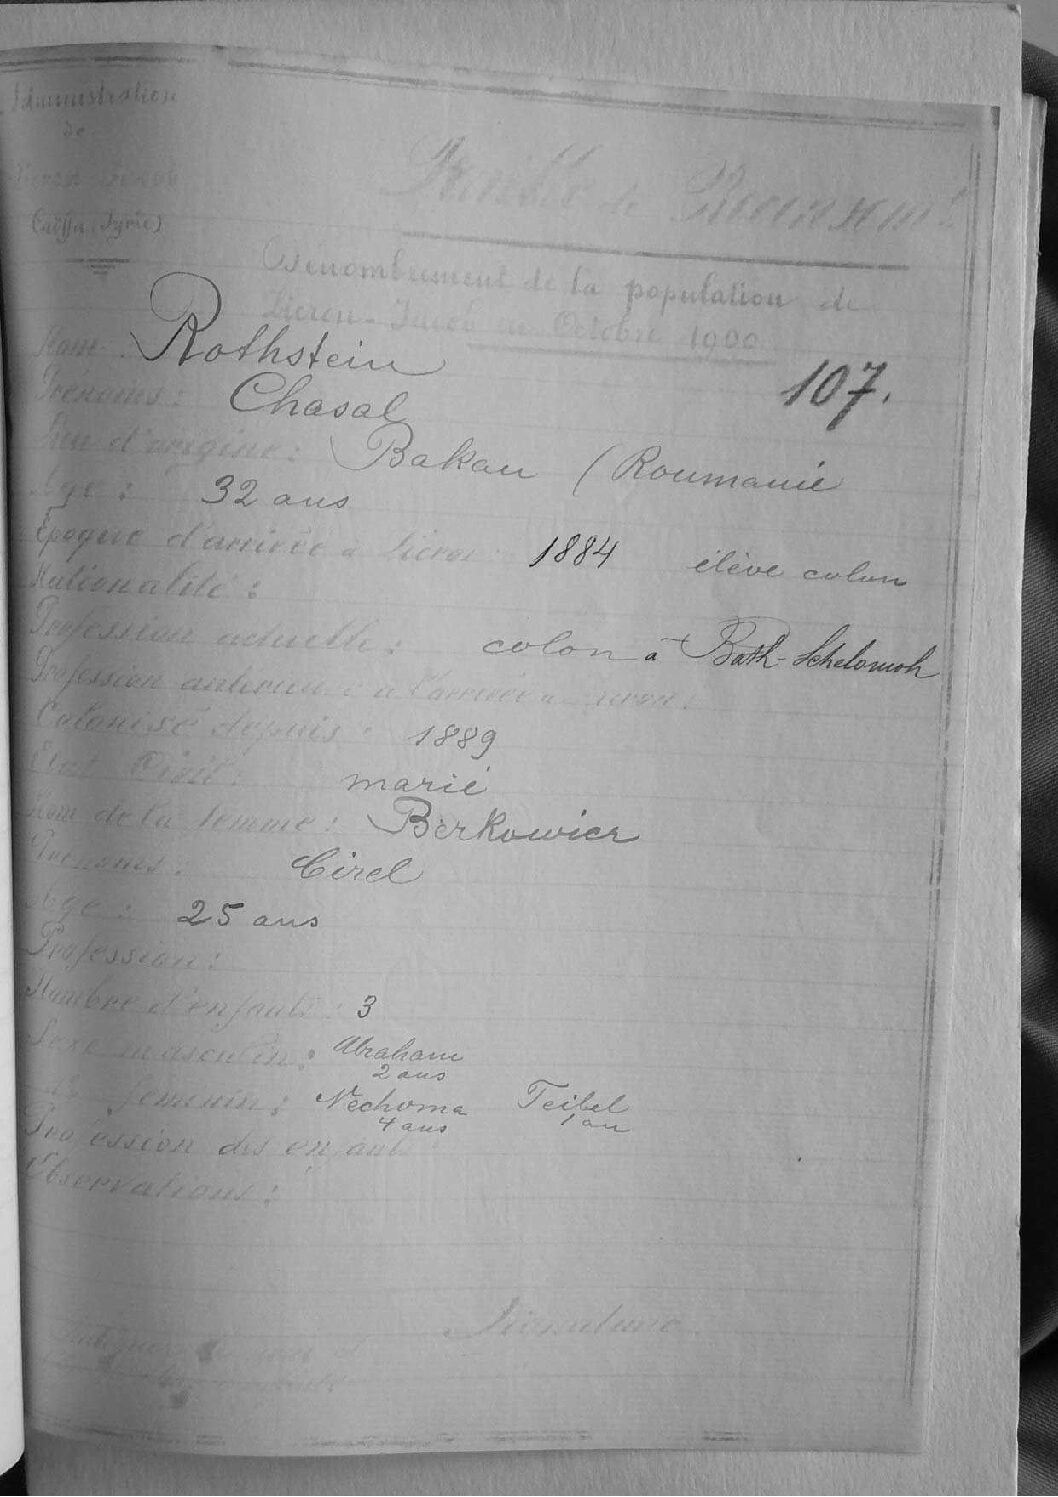 Administration
de
Caïffa (Syrie)
Feuille de Recensemt
Dénombrement de la population de
Zicron-Jacob en Octobre 1900
Nom: Rothstein
107.
Prénoms: Chasal
Lieu d'origine: Bakau (Roumanie
Age: 32 ans
Epoque d'arrivée à Zicron 1884 élève colon
Nationalité:
Profession actuelle: colon à Bath-Schelomoh
Profession antérieure à l'arrivée à Zicron:
Colonisé depuis: 1889
Etat Civil: marié
Nom de la femme: Berkowicz
Prénoms: Cirel
Age: 25 ans
Profession:
Nombre d'enfants: 3
Sexe masculin: Abraham
2 ans
féminin: Nechoma Teibel
4 ans 1 an
Profession des enfants
Observations:
Signature